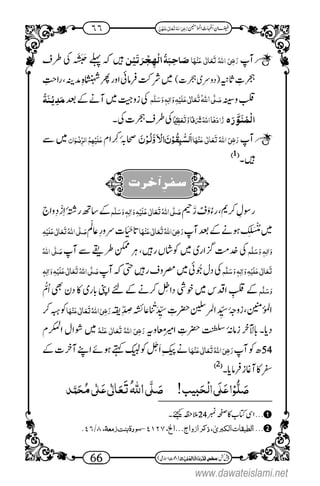 ۶۶ فیضانِ امہاتُ المؤمنین
آپ رَضِیَ اللہُ تَعَالٰی عَنْہَا صَاحِبَۃُ الْہِجْرَتَیْن ہیں کہ پہلے حَبْشَہ کی طرف
ہجرتِ ثانیہ (دوسری ہجرت) میں شرکت فرمائی اور پھر شہنشاہِ مدینہ، راحتِ
قلبِ و سینہ صَلَّی اللہُ تَعَالٰی عَلَیْہِ وَاٰلِہٖ وَسَلَّم کی زوجیت میں آنے کے بعد مَدِیْنَۃُ
الْمُنَوَّرَہ زَادَہَا اللہُ شَرَفًا وَّتَعْظِیْمًا کی طرف ہجرت کی۔
آپ رَضِیَ اللہُ تَعَالٰی عَنْہَا اَلسّٰبِقُوْنَ الْاَوَّلُوْنَ صحابۂ کرام عَلَیْہِمُ الرِّضْوَان میں سے
ہیں۔ (1)
سفرِ آخرت
رسولِ کریم، رَءُوْفٌ رَّحیم صَلَّی اللہُ تَعَالٰی عَلَیْہِ وَاٰلِہٖ وَسَلَّم کے ساتھ رشتۂ ازدواج
میں مُنْسَلِک ہونے کے بعد آپ رَضِیَ اللہُ تَعَالٰی عَنْہَا تاحیات سرورِ عالَم صَلَّی اللہُ تَعَالٰی عَلَیْہِ
وَاٰلِہٖ وَسَلَّم کی خدمت گزاری میں کوشاں رہیں، ہر ممکن طریقے سے آپ صَلَّی اللہُ
تَعَالٰی عَلَیْہِ وَاٰلِہٖ وَسَلَّم کی دل جُوئی میں مصروف رہیں حتی کہ آپ صَلَّی اللہُ تَعَالٰی عَلَیْہِ وَاٰلِہٖ
وَسَلَّم کے قلبِ اقدس میں خوشی داخل کرنے کے لئے اپنی باری کا دن بھی اُمُّ
المؤمنین، زوجۂ سیّد المرسلین حضرتِ سیّدتنا عائشہ صدیقہ رَضِیَ اللہُ تَعَالٰی عَنْہَا کو ہبہ کر
دیا۔ بالآخر زمانۂ سلطنتِ حضرتِ سیّدنا امیر معاویہ رَضِیَ اللہُ تَعَالٰی عَنْہُ میں شوال المکرم
54ھ کو آپ رَضِیَ اللہُ تَعَالٰی عَنْہَا نے پیکِ اَجَل کو لبیک کہتے ہوئے اپنے آخرت کے
سفر کا آغاز فرمایا۔ (2)
صَلُّوْا عَلَی الْحَبِیْب! صَلَّی اللہُ تَعَالٰی عَلٰی مُحَمَّد
1 …اسی کتاب کا صفحہ نمبر 24 ملاحظہ کیجئے۔
2 …الطبقات الکبریٰ، ذکر ازواج…الخ، ۴۱۲۷-سودۃ بنت زمعۃ، ۸/۴۶.
66
www.dawateislami.net